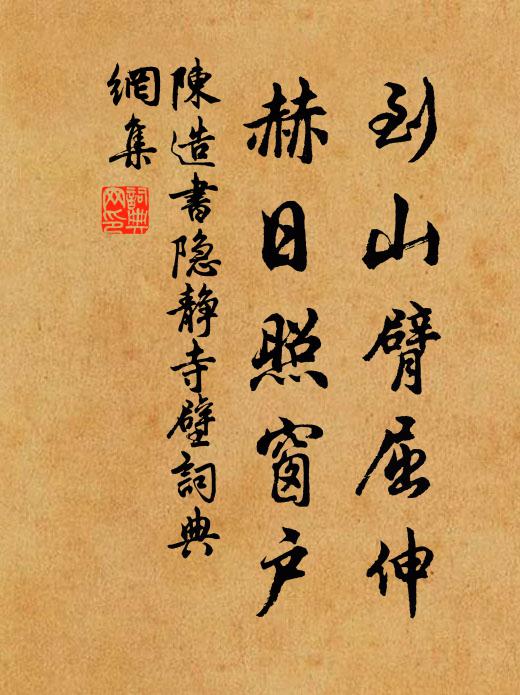 到山臂屈伸
赫日照窗户
陳造書隐静寺壁詞典
網集
詞典
网印